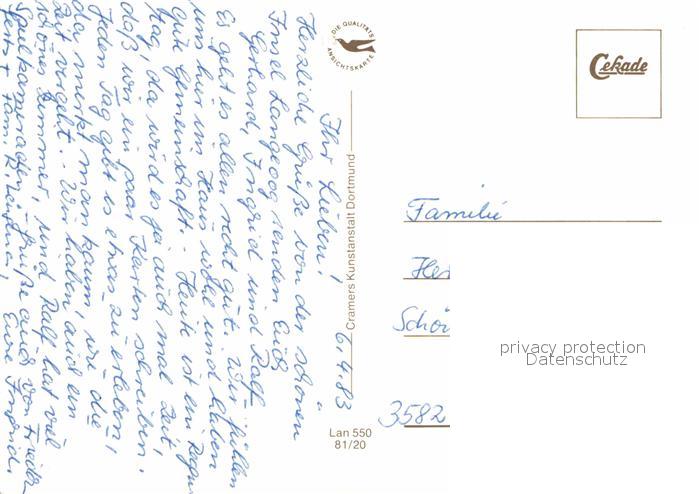 6.4.83
Ihr Lieben!
Herzliche Grüße von der schönen
Insel Langeoog senden Euch
Gerhard, Ingrid und Ralf.
Es geht es allen recht gut. Wir fühlen
uns hier im Haus wohl und haben
gute Gemeinschaft. Heute ist ein Regen
tag, da wird es ja auch mal Zeit,
daß wir ein paar Karten schreiben.
Jeden Tag gibt es etwas zu erleben,
da merkt man kaum, wie die
Zeit vergeht. Wir haben auch ein
schönes Zimmer, und Ralf hat viel
Spielkameraden. Grüße auch von Frieder
Fam. Eure Ingrid.
DIE QUALITÄTS
ANSICHTSKARTE
Cramers Kunstanstalt Dortmund
Lan 550
81/20
Cekade
Familie
Her
Schön
3582
privacy protection
Datenschutz